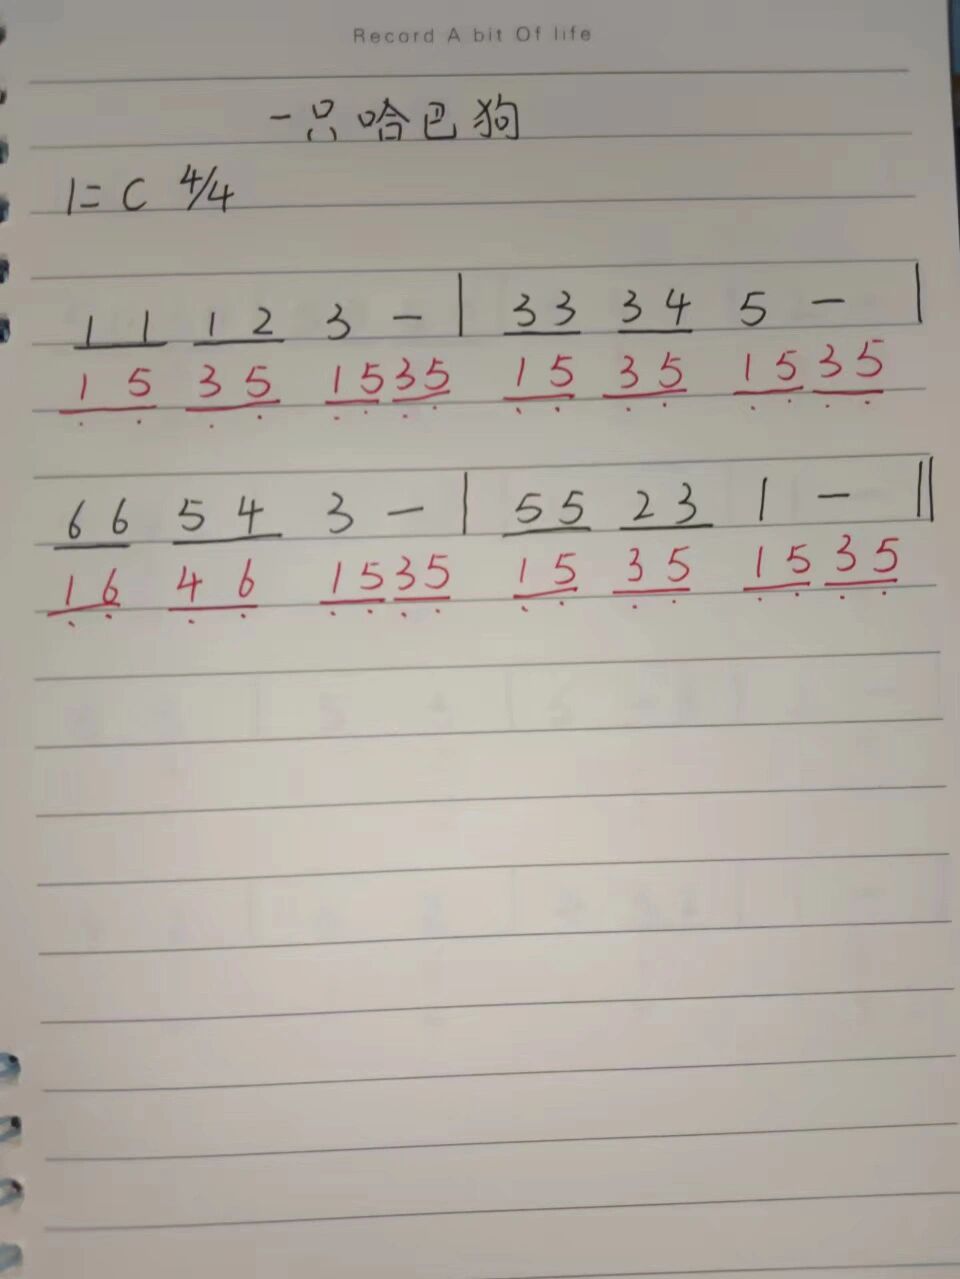 Record A bit Of life
一只哈巴狗
1= C 4/4
1 1 1 2 3 - | 3 3 3 4 5 - |
1 5 3 5 1 5 3 5 1 5 3 5 1 5 3 5
6 6 5 4 3 - | 5 5 2 3 1 - ‖
1 6 4 6 1 5 3 5 1 5 3 5 1 5 3 5